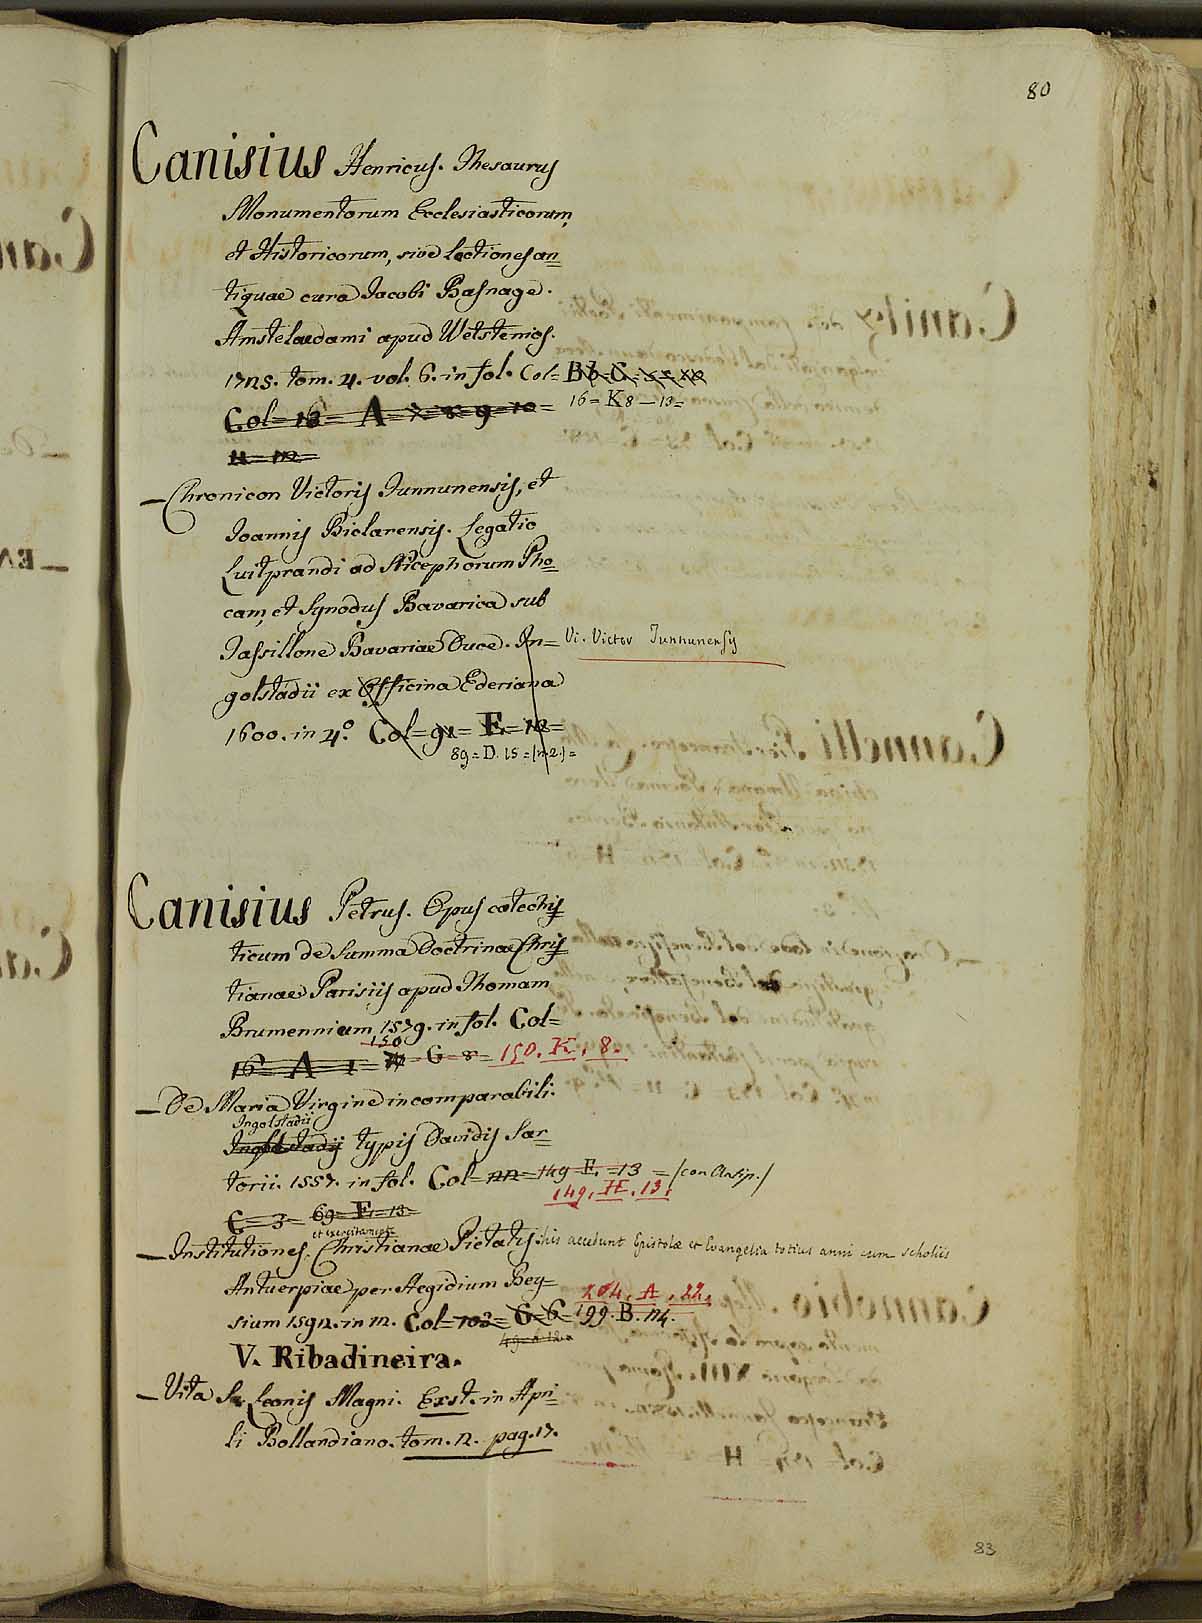 80
Canisius Henricus. Thesaurus
Monumentorum Ecclesiasticorum,
et Historicorum, sive lectiones an=
tiquae cura Jacobi Basnage.
Amstelaedami apud Wetstenios.
1725. tom. 4. vol. 6. in fol. Col= Bb= C=
16= K 8 — 13=
Col= 13= A= 7= 8= 9= 10=
11= 12=
— Chronicon Victoris Tunnunensis, et
Joannis Biclarensis. Legatio
Luitprandi ad Nicephorum Pho=
cam, et Synodus Bavarica sub
Tassillone Bavariae Duce. In=
Vi. Victor Tunnunensis
golstadii ex Officina Ederiana
1600. in 4.º Col= 92= E= 12=
89= D. 15= (n 2.)=
Canisius Petrus. Opus catechis=
ticum de Summa Doctrinae Chris=
tianae Parisiis apud Thomam
Brumennium 1579. in fol. Col=
150
16= A= 1= G= 8= 150. K. 8.
— De Maria Virgine incomparabili.
Ingolstadii
Ingolstadij typis Davidis Sar=
torii. 1557. in fol. Col= 22= 149 E. =13 = (con Ansip.)
149. H. 13.
C= 3= 69= F= 13=
et exercitamenta
— Institutiones. Christianae Pietatis: his accedunt Epistolæ et Evangelia totius anni cum scholiis
Antuerpiae per Aegidium Bey=
204. A. 22.
sium 1592. in 12. Col= 103= G= 6= 199. B. 24.
49= A 12=
V. Ribadineira.
— Vita S. Leonis Magni. Exst. in Apri=
li Bollandiano. tom. 2. pag. 17.
83